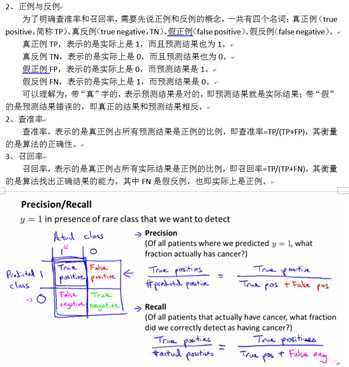 2、正例与反例
为了明确查准率和召回率，需要先说正例和反例的概念，一共有四个名词：真正例（true
positive，简称 TP）、真反例（true negative，TN）、假正例（false positive）、假反例（false negative）。
真正例 TP，表示的是实际上是 1，而且预测结果也为 1。
真反例 TN，表示的是实际上是 0，而且预测结果也为 0。
假正例 FP，表示的是实际上是 0，而预测结果是 1。
假反例 FN，表示的是实际上是 1，而预测结果是 0。
可以理解为，带“真”字的，表示预测结果是对的，即预测结果就是实际结果；带“假”
的是预测结果错误的，即真正的结果和预测结果相反。
2、查准率
查准率，表示的是真正例占所有预测结果是正例的比例，即查准率=TP/(TP+FP)，其衡量
的是算法的正确性。
3、召回率
召回率，表示的是真正例占所有实际结果是正例的比例，即召回率=TP/(TP+FN)，其衡量
的是算法找出正确结果的能力，其中 FN 是假反例，也即实际上是正例。
Precision/Recall
y = 1 in presence of rare class that we want to detect
Actual class
1 0
Predicted 1 True positive False positive
class
0 False negative True negative
→ Precision
(Of all patients where we predicted y = 1, what
fraction actually has cancer?)
True positives / #predicted positive = True positive / True pos + False pos
→ Recall
(Of all patients that actually have cancer, what fraction
did we correctly detect as having cancer?)
True positives / #actual positives = True positives / True pos + False neg